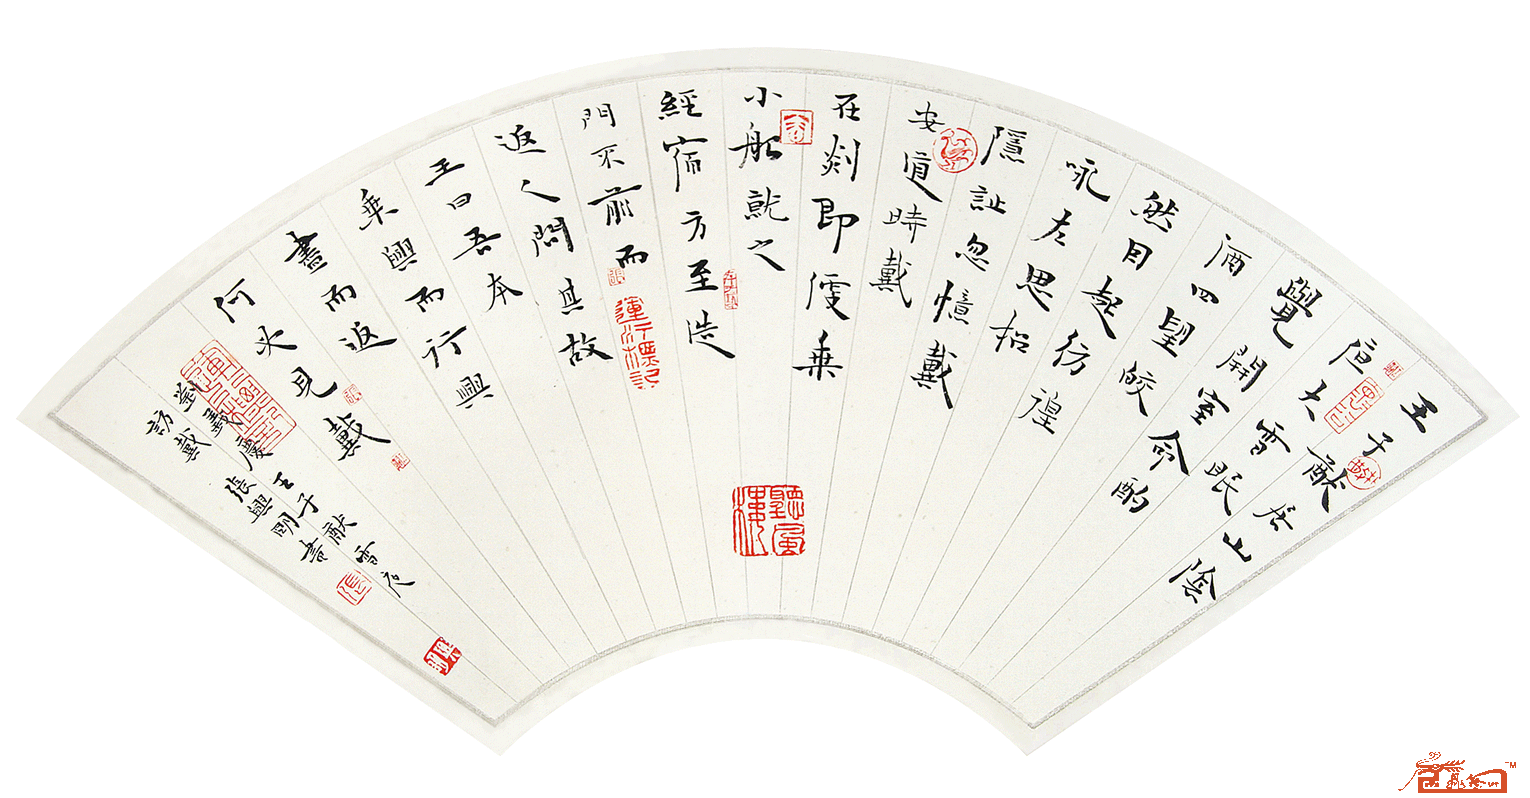 王子猷居山陰
夜大雪眠
覺開室命酌
酒四望皎
然因起彷徨
咏左思招
隱詩忽憶戴
安道時戴
在剡即便乘
小船就之
經宿方至造
門不前而
返人問其故
王曰吾本
乘興而行興
盡而返
何必見戴
劉義慶王子猷雪夜
訪戴 張興明書
聽風樓